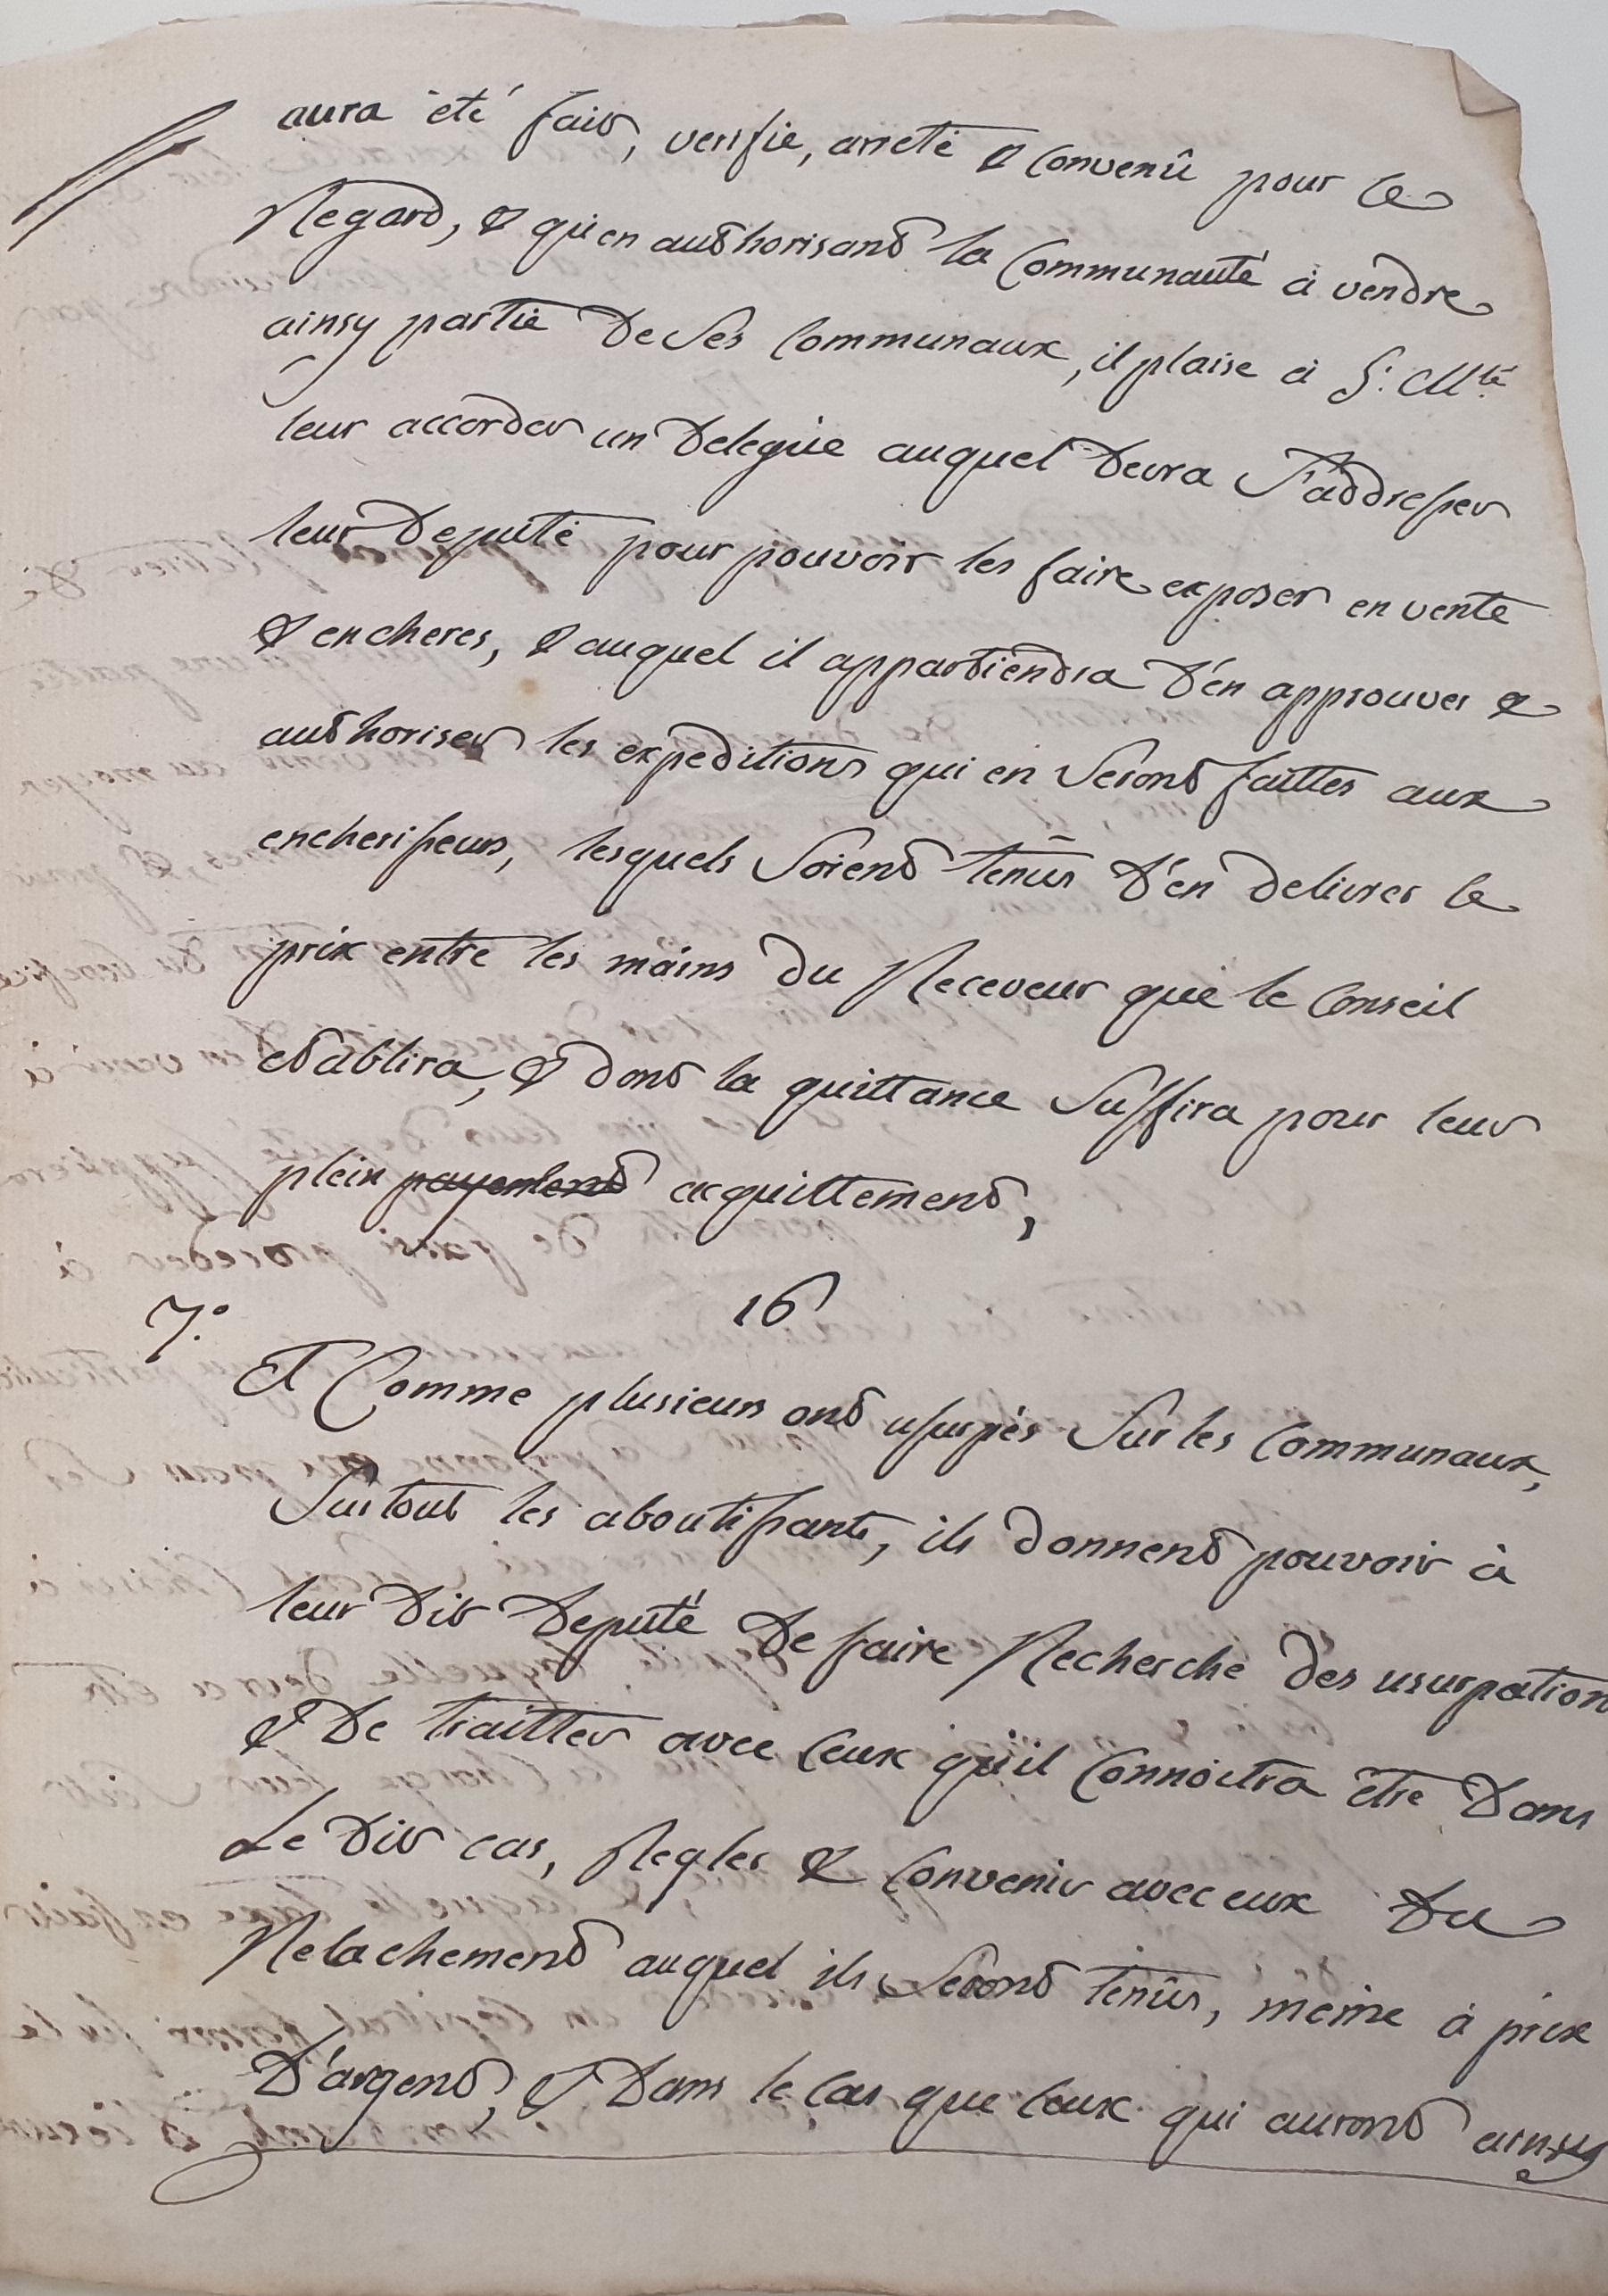 aura eté fait, verifie, arreté & convenû pour ce
Regard, & qu'en authorisant la Communauté à vendre
ainsy partie de ses Communaux, il plaise à S: Mté
leur accorder un delegué auquel devra s'addresser
leur deputé pour pouvoir les faire exposer en vente
& encheres, & auquel il appartiendra d'en approuver &
authoriser les expeditions qui en seront faittes aux
encherisseurs, lesquels soient tenûs d'en delivrer le
prix entre les mains du Receveur que le Conseil
etablira, & dont la quittance suffira pour leur
plein payement acquittement,
7.° 16
Et Comme plusieurs ont usurpés sur les communaux,
surtout les aboutissants, ils donnent pouvoir à
leur dit deputé de faire Recherche des usurpation
& de traitter avec ceux qu'il connoitra être dans
Le dit cas, Regler & convenir avec eux du
Relachement auquel ils seront tenûs, meme à prix
d'argent, & dans le cas que ceux qui auront ainsy